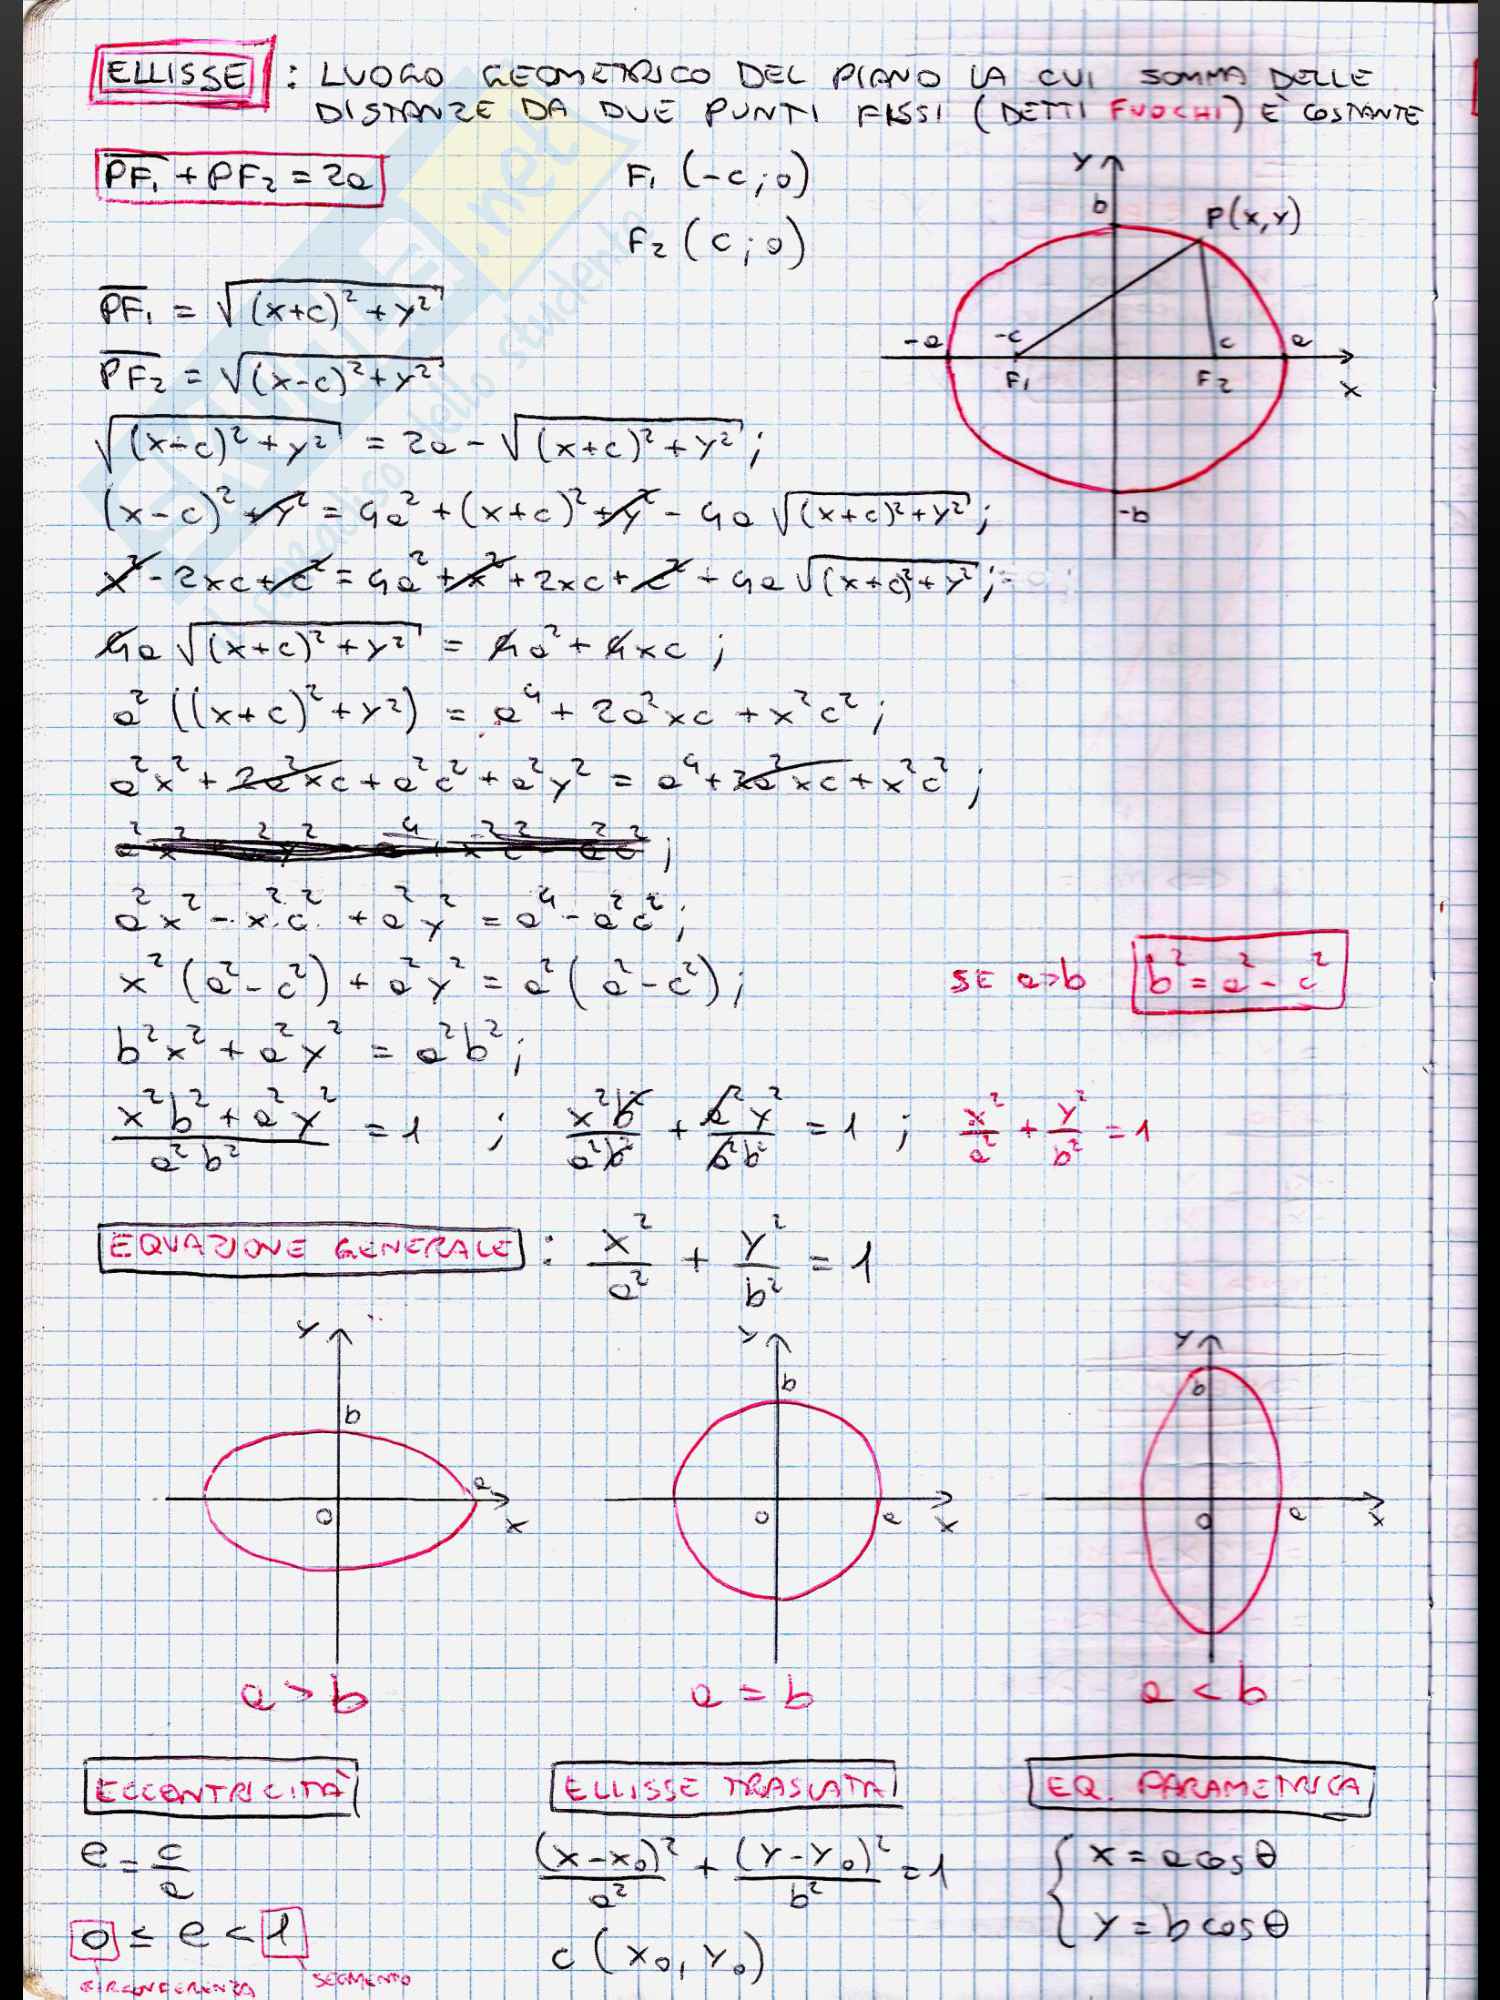 ELLISSE : LUOGO GEOMETRICO DEL PIANO LA CUI SOMMA DELLE
DISTANZE DA DUE PUNTI FISSI (DETTI FUOCHI) È COSTANTE
PF₁ + PF₂ = 2a
F₁ (-c; 0)
F₂ (c; 0)
Y
b
P(x,y)
-a
-c
c
a
F₁
F₂
x
-b
PF₁ = √((x+c)² + y²)
PF₂ = √((x-c)² + y²)
√((x-c)² + y²) = 2a - √((x+c)² + y²) ;
(x-c)² + y² = 4a² + (x+c)² + y² - 4a √((x+c)² + y²) ;
x² - 2xc + c² = 4a² + x² + 2xc + c² - 4a √((x+c)² + y²) ;
4a √((x+c)² + y²) = 4a² + 4xc ;
a² ((x+c)² + y²) = a⁴ + 2a²xc + x²c² ;
a²x² + 2a²xc + a²c² + a²y² = a⁴ + 2a²xc + x²c² ;
a²x² - x²c² + a²y² = a⁴ - a²c² ;
x² (a² - c²) + a²y² = a² (a² - c²) ;
SE a>b b² = a² - c²
b²x² + a²y² = a²b² ;
(x²b² + a²y²)/(a²b²) = 1 ; x²b²/(a²b²) + a²y²/(a²b²) = 1 ; x²/a² + y²/b² = 1
EQUAZIONE GENERALE : x²/a² + y²/b² = 1
Y
b
a
O
x
Y
b
O
a
x
Y
b
O
a
x
a > b
a = b
a < b
ECCENTRICITÀ
e = c/a
0 ≤ e < 1
CIRCONFERENZA
SEGMENTO
ELLISSE TRASLATA
(x-x₀)²/a² + (y-y₀)²/b² = 1
c (x₀, y₀)
EQ. PARAMETRICA
{ x = a cos θ
y = b cos θ
.net
dello studente